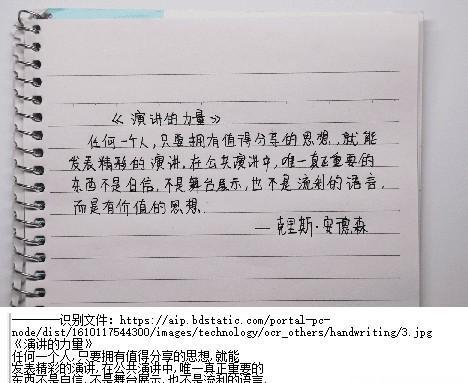 《演讲的力量》
任何一个人,只要拥有值得分享的思想,就能
发表精彩的演讲,在公共演讲中,唯一真正重要的
东西不是自信,不是舞台展示,也不是流利的语言,
而是有价值的思想.
——克里斯·安德森
————识别文件: https://aip.bdstatic.com/portal-pc-
node/dist/1610117544300/images/technology/ocr_others/handwriting/3.jpg
《演讲的力量》
任何一个人,只要拥有值得分享的思想,就能
发表精彩的演讲,在公共演讲中,唯一真正重要的
东西不是自信,不是舞台展示,也不是流利的语言,